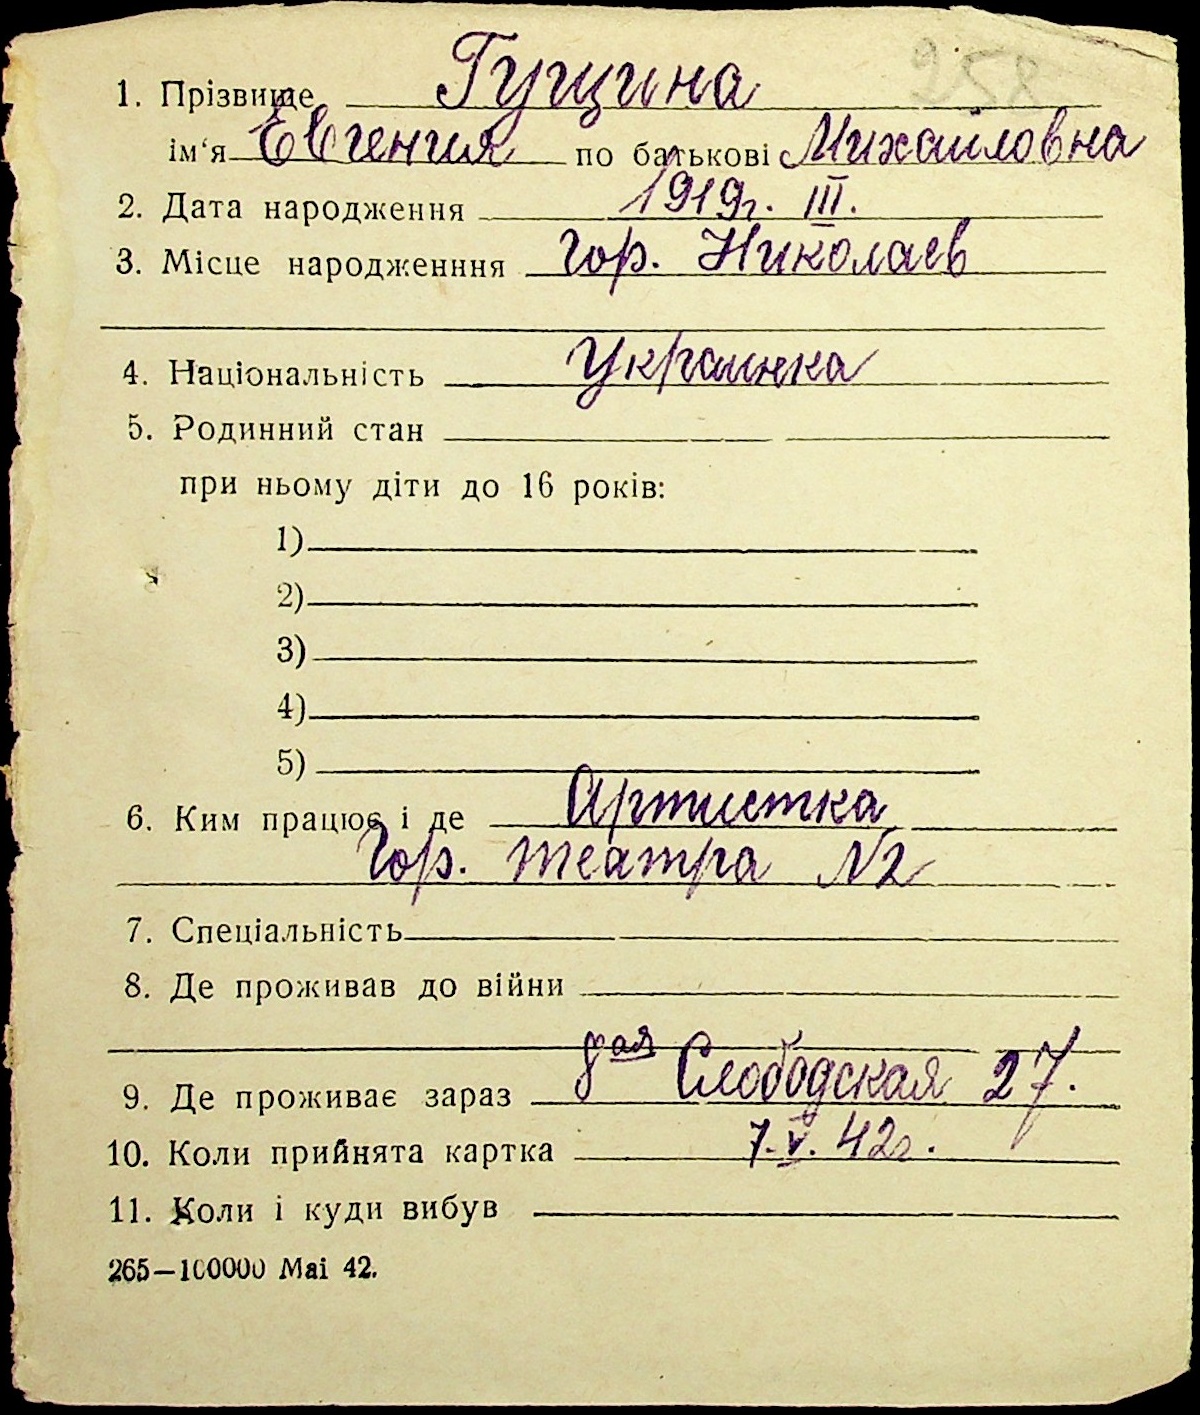 258
1. Прізвище Гущина
ім'я Евгения по батькові Михайловна
2. Дата народження 1919г. III.
3. Місце народженння Гор. Николаев
4. Національність Украинка
5. Родинний стан
при ньому діти до 16 років:
1)
2)
3)
4)
5)
6. Ким працює і де Артистка
Гор. театра N2
7. Спеціальність
8. Де проживав до війни
9. Де проживає зараз 8ая Слободская 27.
10. Коли прийнята картка 7.V.42г.
11. Коли і куди вибув
265—100000 Mai 42.